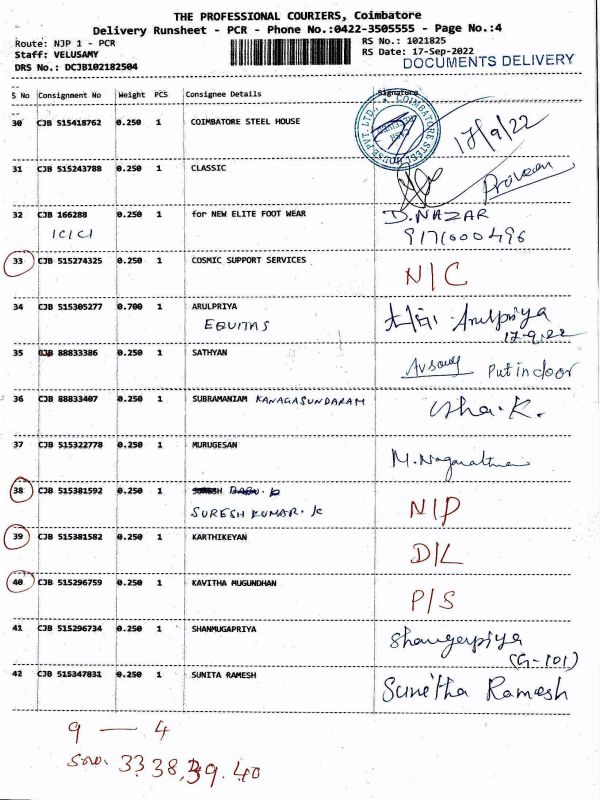 THE PROFESSIONAL COURIERS, Coimbatore
Delivery Runsheet - PCR - Phone No.:0422-3505555 - Page No.:4
Route: NJP 1 - PCR
RS No.: 1021825
Staff: VELUSAMY
RS Date: 17-Sep-2022
DRS No.: DCJB102182504
DOCUMENTS DELIVERY
S No Consignment No Weight PCS Consignee Details Signature
30 CJB 515418762 0.250 1 COIMBATORE STEEL HOUSE
17/9/22
31 CJB 515243788 0.250 1 CLASSIC
Praveen
32 CJB 166288 0.250 1 for NEW ELITE FOOT WEAR D.NAZAR
ICICI 9171000496
33 CJB 515274325 0.250 1 COSMIC SUPPORT SERVICES N/C
34 CJB 515305277 0.700 1 ARULPRIYA Arulpriya
EQUITAS 17-9-22
35 CJB 88833386 0.250 1 SATHYAN Put indoor
36 CJB 88833407 0.250 1 SUBRAMANIAM KANAGASUNDARAM Usha.K.
37 CJB 515322778 0.250 1 MURUGESAN
M.Nagarathna
38 CJB 515381592 0.250 1
SURESH KUMAR. K N/P
39 CJB 515381582 0.250 1 KARTHIKEYAN D/L
40 CJB 515296759 0.250 1 KAVITHA MUGUNDHAN P/S
41 CJB 515296734 0.250 1 SHANMUGAPRIYA
(G-101)
42 CJB 515347831 0.250 1 SUNITA RAMESH Sunitha Ramesh
9 — 4
Sno. 33 38, 39. 40